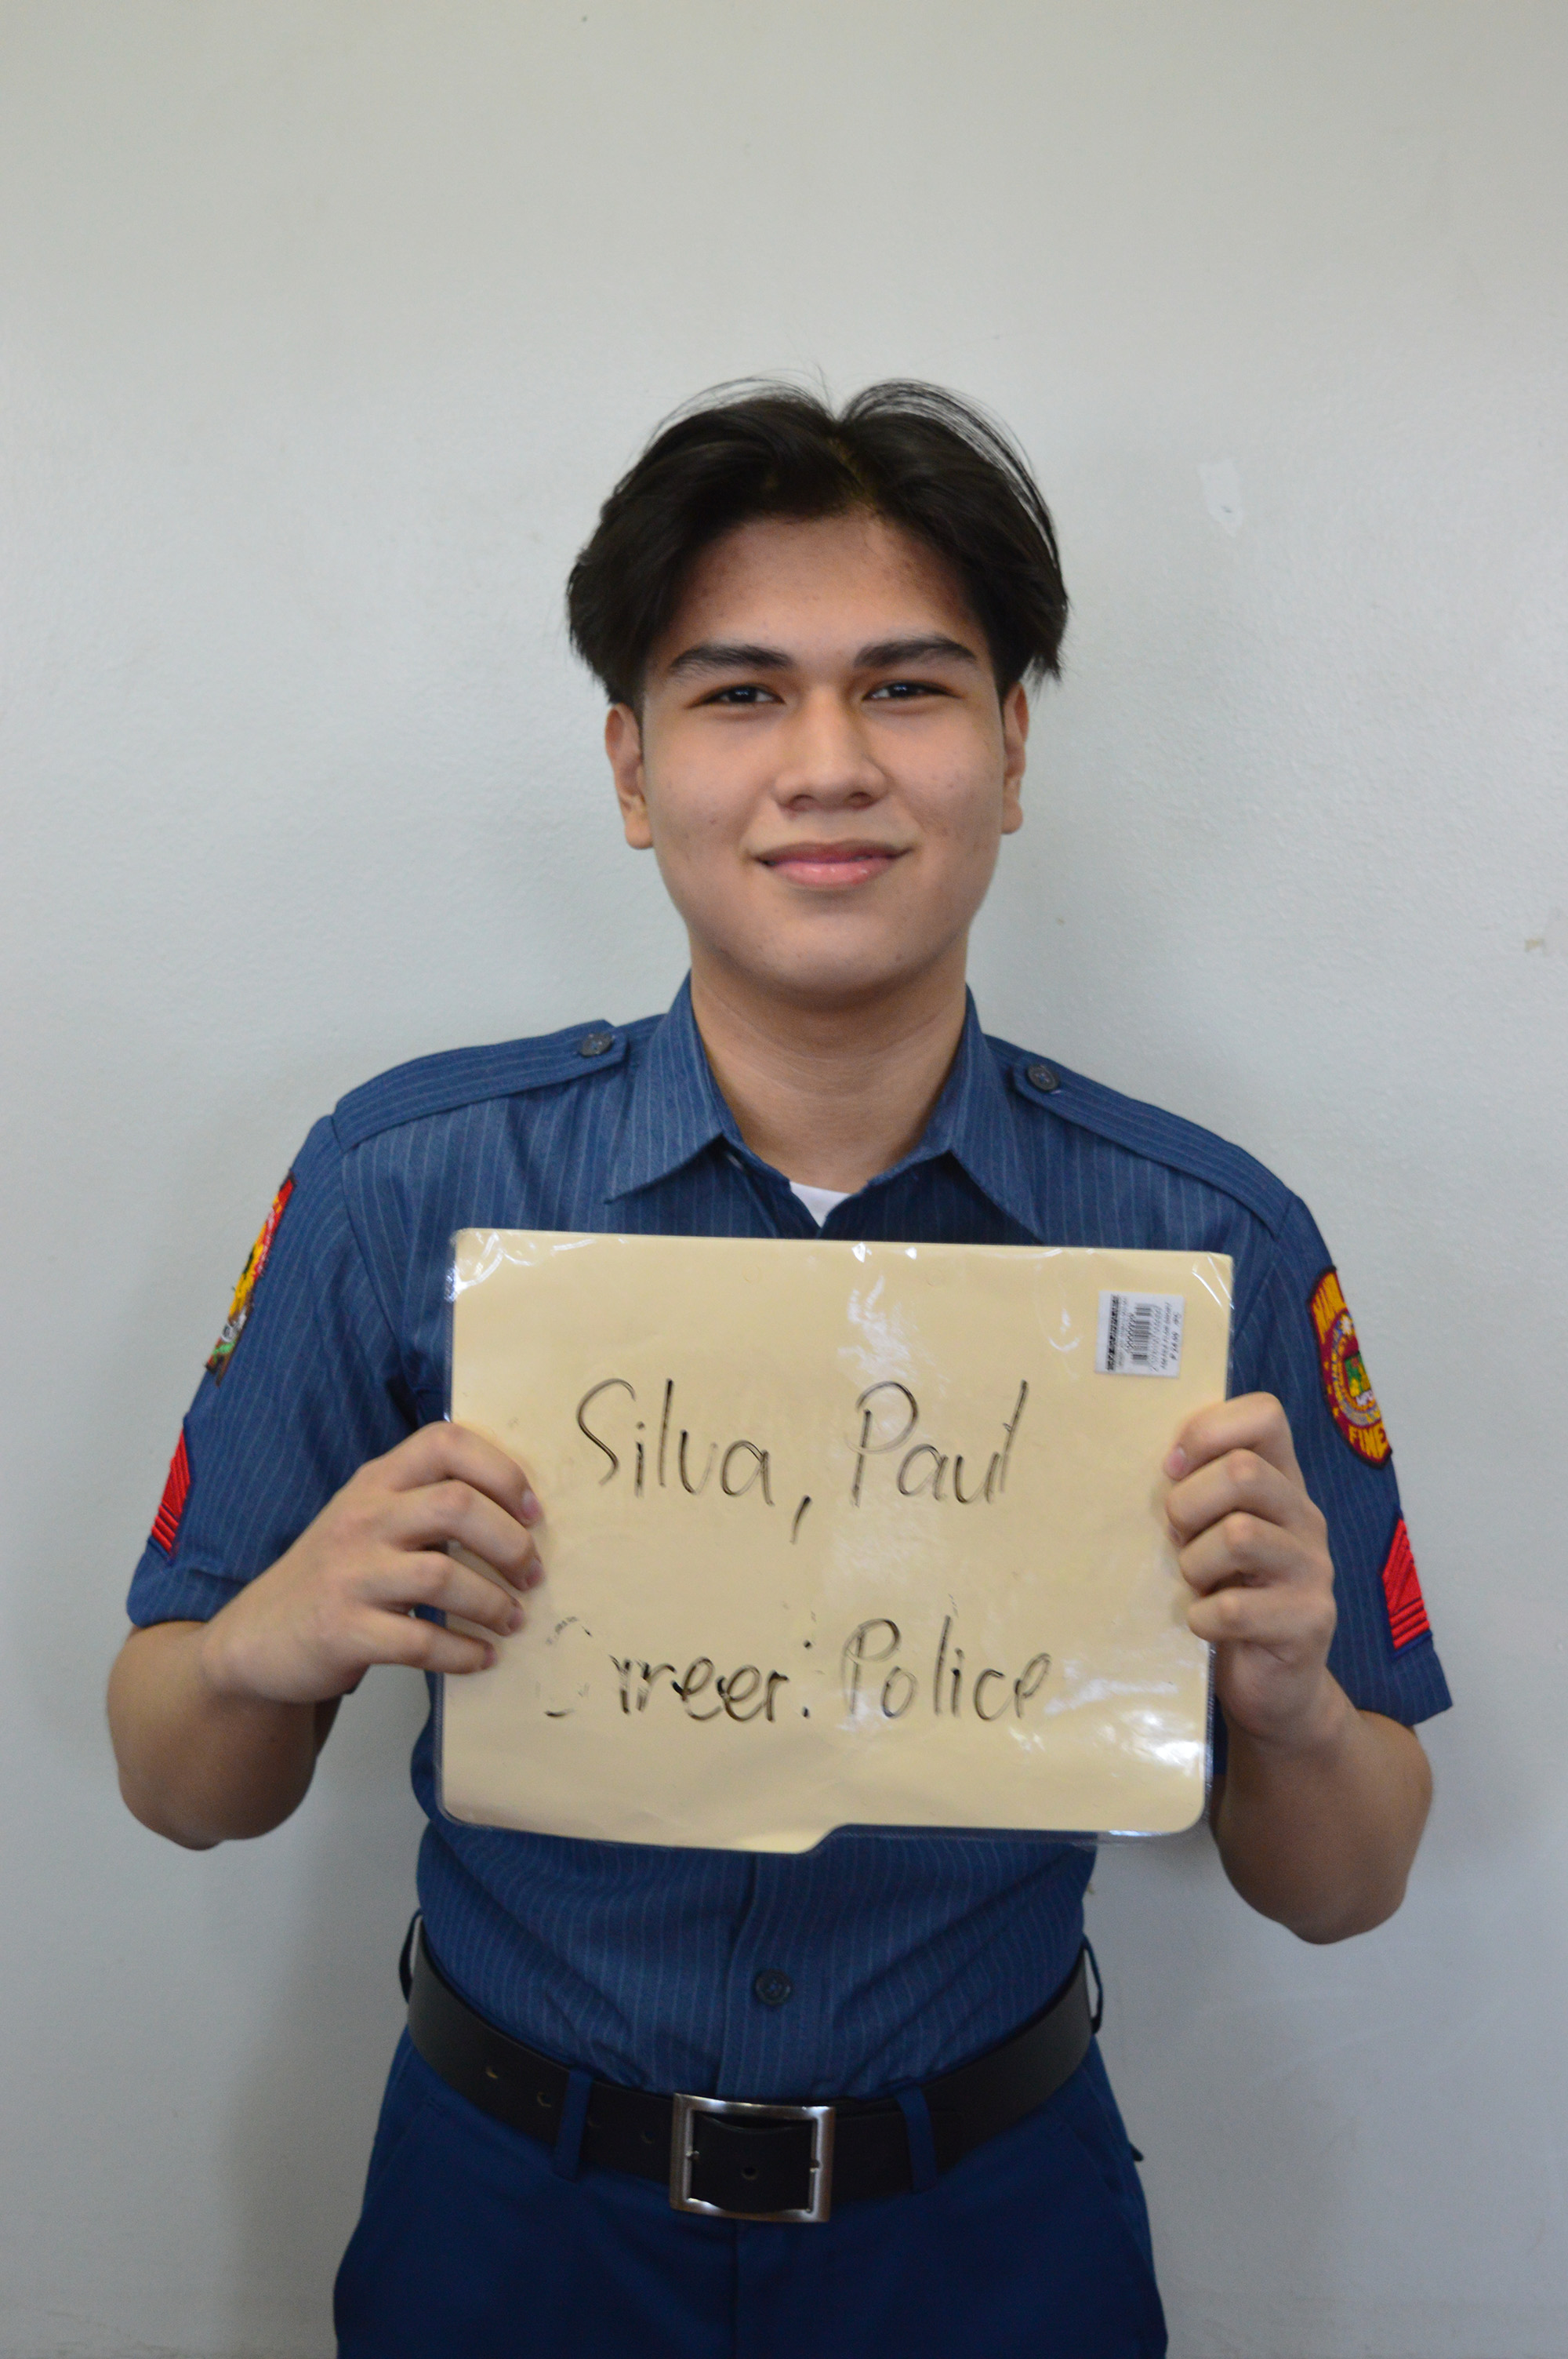 Silva, Paul
Career: Police
FINE